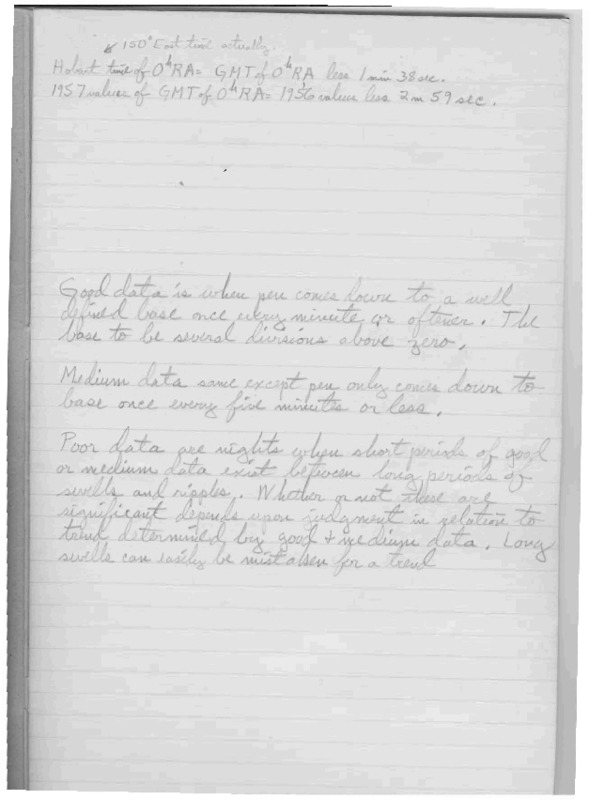 ↙ 150° East time actually.
Hobart time of 0ʰRA = GMT of 0ʰRA less 1 min 38 sec.
1957 values of GMT of 0ʰRA = 1956 values less 2m 59 sec.
Good data is when pen comes down to a well
defined base once every minute or oftener. The
base to be several divisions above zero.
Medium data same except pen only comes down to
base once every five minutes or less.
Poor data are nights when short periods of good
or medium data exist between long periods of
swells and ripples. Whether or not these are
significant depends upon judgment in relation to
trend determined by good + medium data. Long
swells can easily be mistaken for a trend